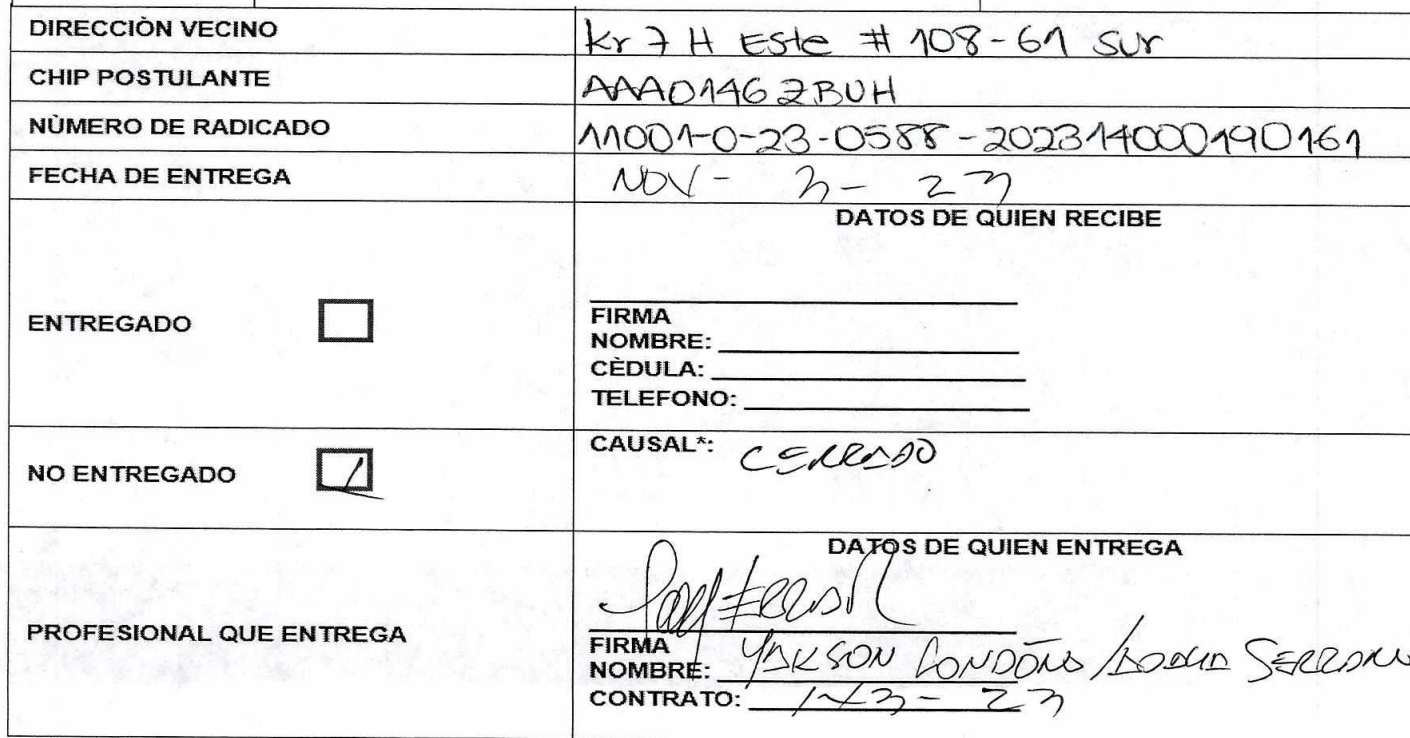 DIRECCIÒN VECINO kr 7 H Este # 108-61 sur
CHIP POSTULANTE AAA0146ZBUH
NÙMERO DE RADICADO 11001-0-23-0588-202314000190161
FECHA DE ENTREGA NOV - 3 - 23
DATOS DE QUIEN RECIBE
ENTREGADO
FIRMA
NOMBRE:
CÈDULA:
TELEFONO:
NO ENTREGADO
CAUSAL*: CERRADO
DATOS DE QUIEN ENTREGA
PROFESIONAL QUE ENTREGA
FIRMA
NOMBRE: YAKSON LONDOÑO / SERRANO
CONTRATO: - 23